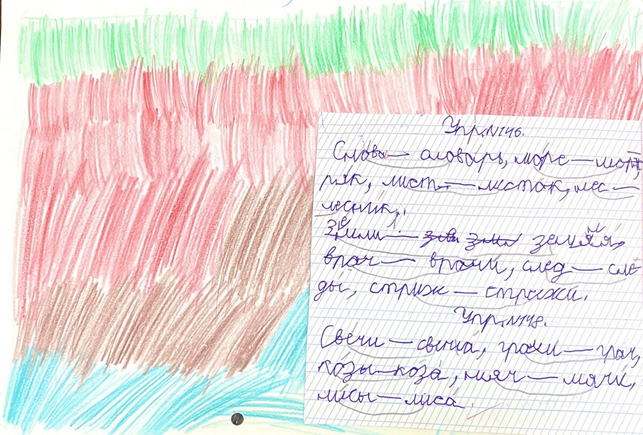 Упр.№146.
Слово — словарь, море — мо
ряк, лист — листок, лес —
лесник,
Земли — земля,
врач — врачи, след — сле
ды, стриж — стрижи.
Упр.№148.
Свечи — свеча, грачи — грач,
козы — коза, мяч — мячи,
лисы — лиса.